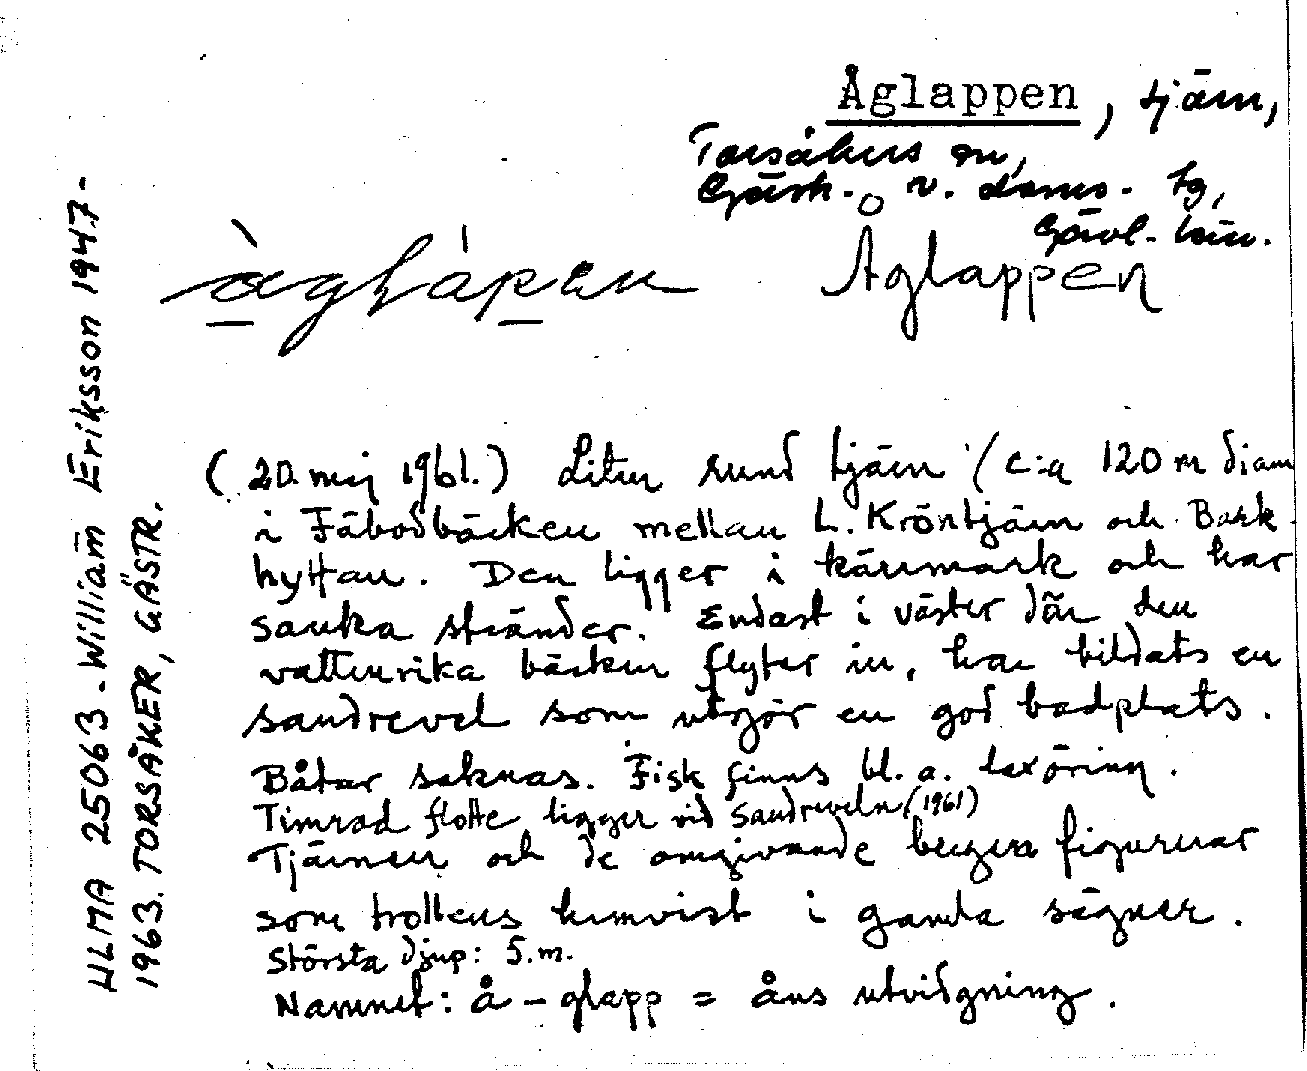 Åglappen, tjärn,
Torsåkers sn,
Gästr. v. doms. tg,
Gävl. län.
Åglappen
(20 maj 1961.) Liten rund tjärn (c:a 120 m diam
i Fäbodbäcken mellan L. Kröntjärn och Bark-
hyttan. Den ligger i kärrmark och har
sanka stränder. Endast i väster där den
vattenrika bäcken flyter in, har bildats en
sandrevel som utgör en god badplats.
Båtar saknas. Fisk finns bl. a. laxöring.
Timrad flotte ligger vid sandreveln (1961)
Tjärnen och de omgivande bergen figurerar
som trollens hemvist i gamla sägner.
Största djup: 5.m.
Namnet: å - glapp = åns utvidgning.
ULMA 25063. William Eriksson 1947-
1963. TORSÅKER, GÄSTR.